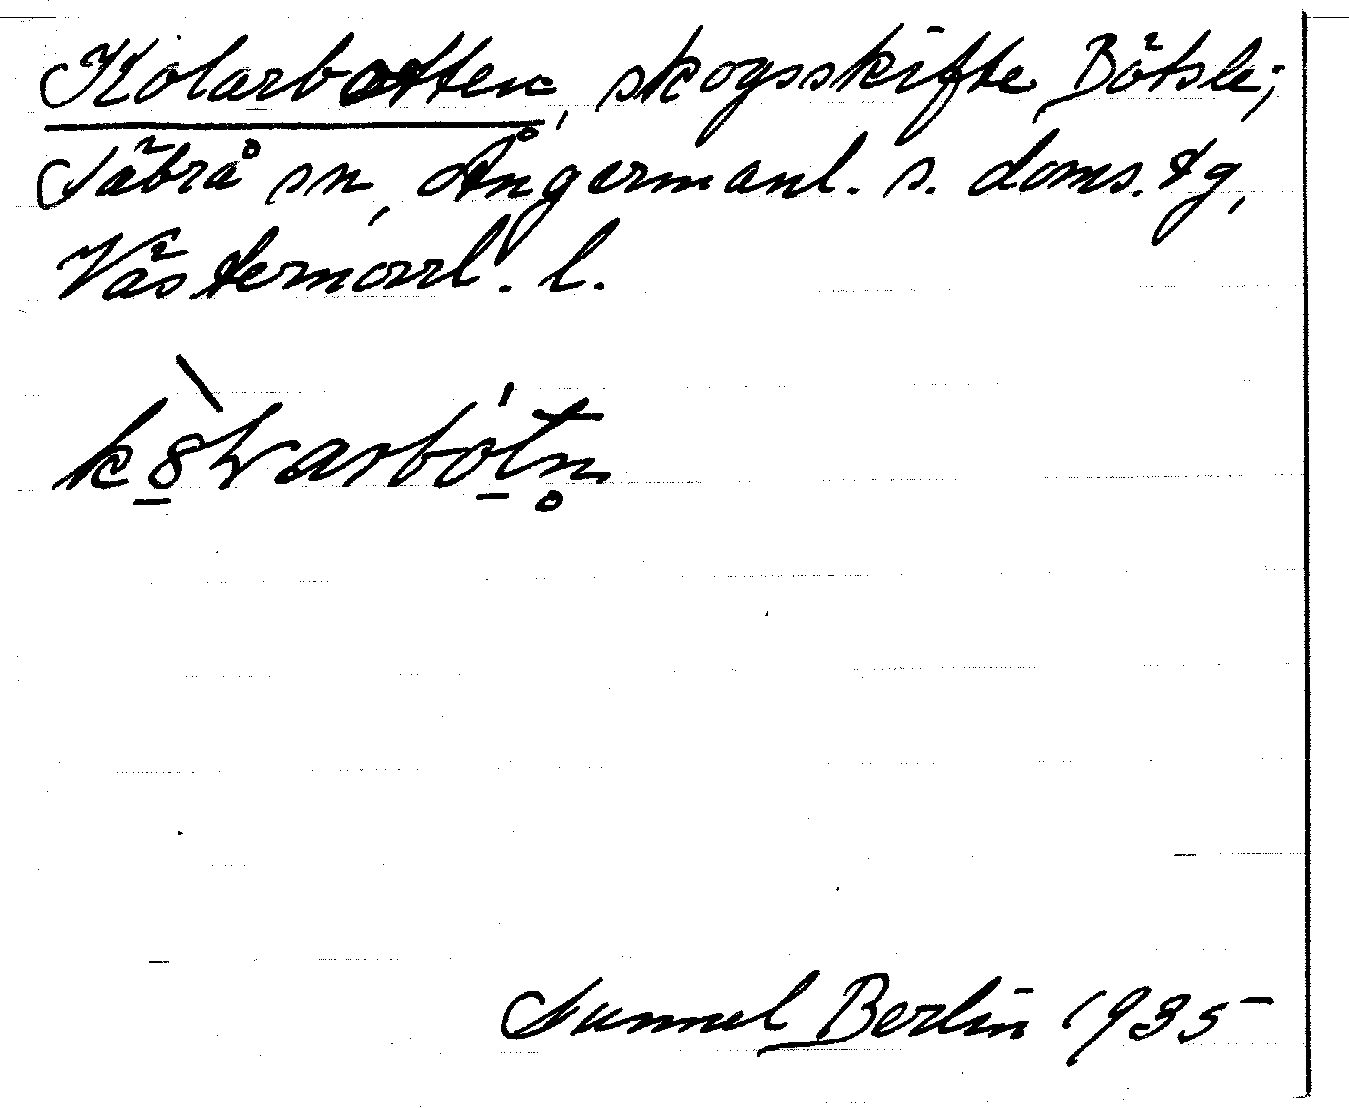 Kolarbotten, skogsskifte Bötsle;
Säbrå sn, Ångermanl. s. doms. tg,
Västernorrl. l.
Gunnel Berlin 1935